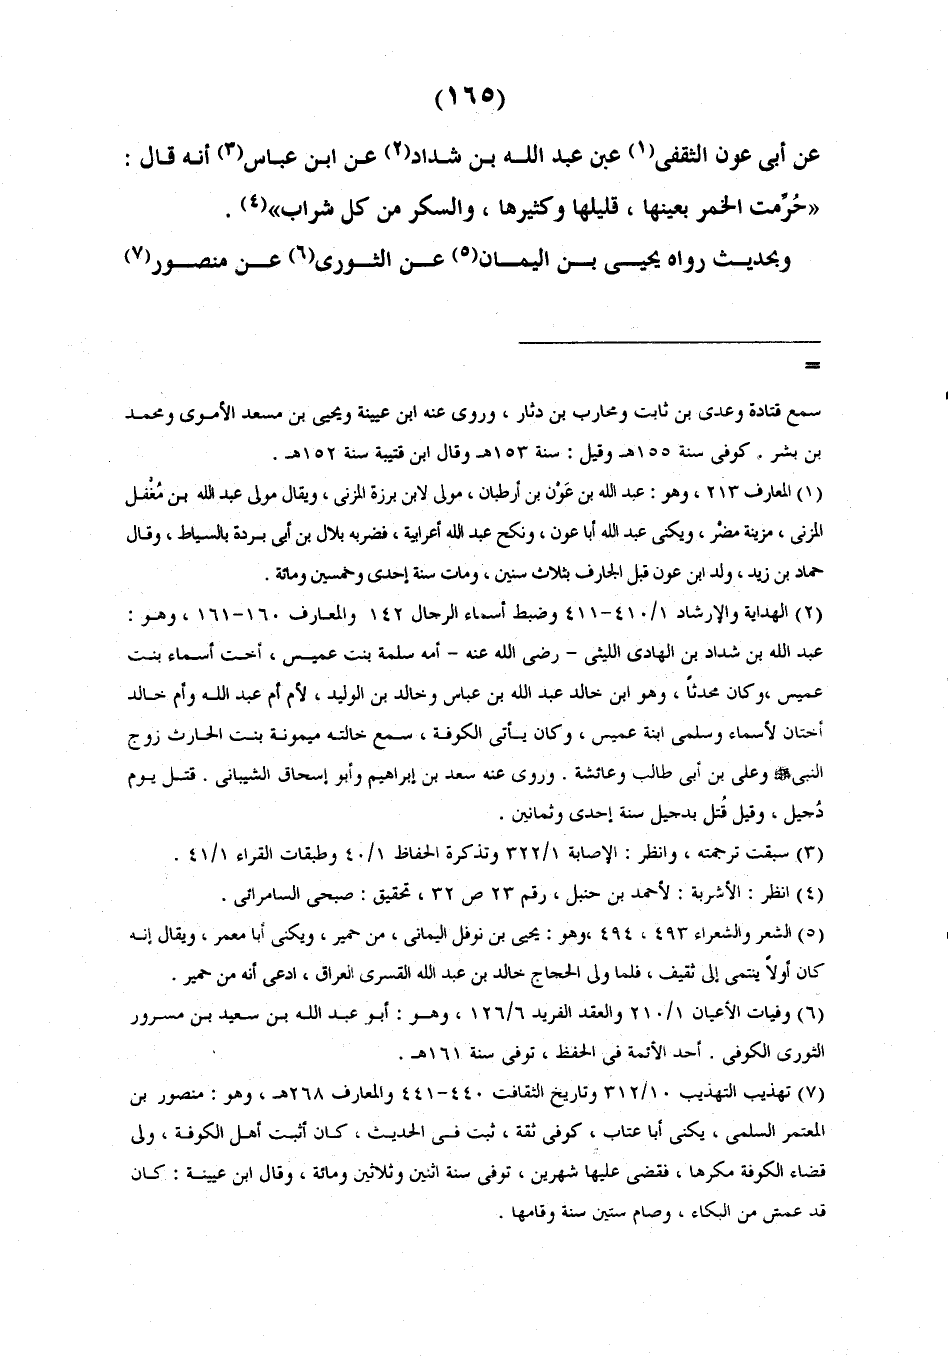 (١٦٥)
عن أبى عون الثقفى(١) عبن عبد اللـه بن شداد(٢) عن ابن عباس(٣) أنه قال :
«حُرِّمت الخمر بعينها ، قليلها وكثيرها ، والسكر من كل شراب»(٤) .
وبحديث رواه يحيى بن اليمان(٥) عن الثورى(٦) عن منصور(٧)
=
سمع قتادة وعدى بن ثابت ومحارب بن دثار ، وروى عنه ابن عيينة ويحيى بن مسعد الأموى ومحمد
بن بشر . كوفى سنة ١٥٥هـ وقيل : سنة ١٥٣هـ وقال ابن قتيبة سنة ١٥٢هـ .
(١) المعارف ٢١٣ ، وهو : عبد الله بن عَوْن بن أرطبان ، مولى لابن برزة المزنى ، ويقال مولى عبد الله بن مُغْفل
المزنى ، مزينة مضْر ، ويكنى عبد الله أبا عون ، ونكح عبد الله أعرابية ، فضربه بلال بن أبى بردة بالسياط ، وقال
حماد بن زيد ، ولد ابن عون قبل الجارف بثلاث سنين ، ومات سنة إحدى وخمسين ومائة .
(٢) الهداية والإرشاد ٤١٠/١–٤١١ وضبط أسماء الرجال ١٤٢ والمعارف ١٦٠–١٦١ ، وهو :
عبد الله بن شداد بن الهادى الليثى – رضى الله عنه – أمه سلمة بنت عميس ، أخت أسماء بنت
عميس ،وكان محدثاً ، وهو ابن خالد عبد الله بن عباس وخالد بن الوليد ، لأم أم عبد اللـه وأم خالد
أختان لأسماء وسلمى ابنة عميس ، وكان يأتى الكوفة ، سمع خالته ميمونة بنت الحارث زوج
النبى ﷺ وعلى بن أبى طالب وعائشة . وروى عنه سعد بن إبراهيم وأبو إسحاق الشيبانى . قتل يوم
دُحيل ، وقيل قُتل بدحيل سنة إحدى وثمانين .
(٣) سبقت ترجمته ، وانظر : الإصابة ٣٢٢/١ وتذكرة الحفاظ ٤٠/١ وطبقات القراء ٤١/١ .
(٤) انظر : الأشربة : لأحمد بن حنبل ، رقم ٢٣ ص ٣٢ ، تحقيق : صبحى السامرائى .
(٥) الشعر والشعراء ٤٩٣ ، ٤٩٤ ،وهو : يحيى بن نوفل اليمانى ، من حمير ، ويكنى أبا معمر ، ويقال إنه
كان أولاً ينتمى إلى ثقيف ، فلما ولى الحجاج خالد بن عبد الله القسرى العراق ، ادعى أنه من حمير .
(٦) وفيات الأعيان ٢١٠/١ والعقد الفريد ١٢٦/٦ ، وهو : أبو عبد الله بن سعيد بن مسرور
الثورى الكوفى . أحد الأئمة فى الحفظ ، توفى سنة ١٦١هـ .
(٧) تهذيب التهذيب ٣١٢/١٠ وتاريخ الثقافت ٤٤٠–٤٤١ والمعارف ٢٦٨هـ ، وهو : منصور بن
المعتمر السلمى ، يكنى أبا عتاب ، كوفى ثقة ، ثبت فى الحديث ، كان أثبت أهل الكوفة ، ولى
قضاء الكوفة مكرها ، فقضى عليها شهرين ، توفى سنة اثنين وثلاثين ومائة ، وقال ابن عيينة : كان
قد عمش من البكاء ، وصام ستين سنة وقامها .